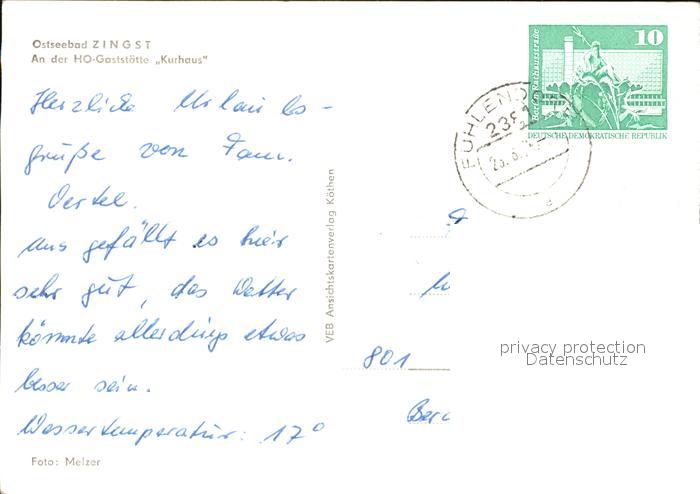 Ostseebad ZINGST
An der HO-Gaststätte „Kurhaus"
Herzliche Urlaubs-
grüße von Fam.
Oertel.
Uns gefällt es hier
sehr gut, das Wetter
könnte allerdings etwas
besser sein.
Wassertemperatur: 17°
Foto: Melzer
VEB Ansichtskartenverlag Köthen
10
Berlin, Rathausstraße
DEUTSCHE DEMOKRATISCHE REPUBLIK
801
privacy protection
Datenschutz